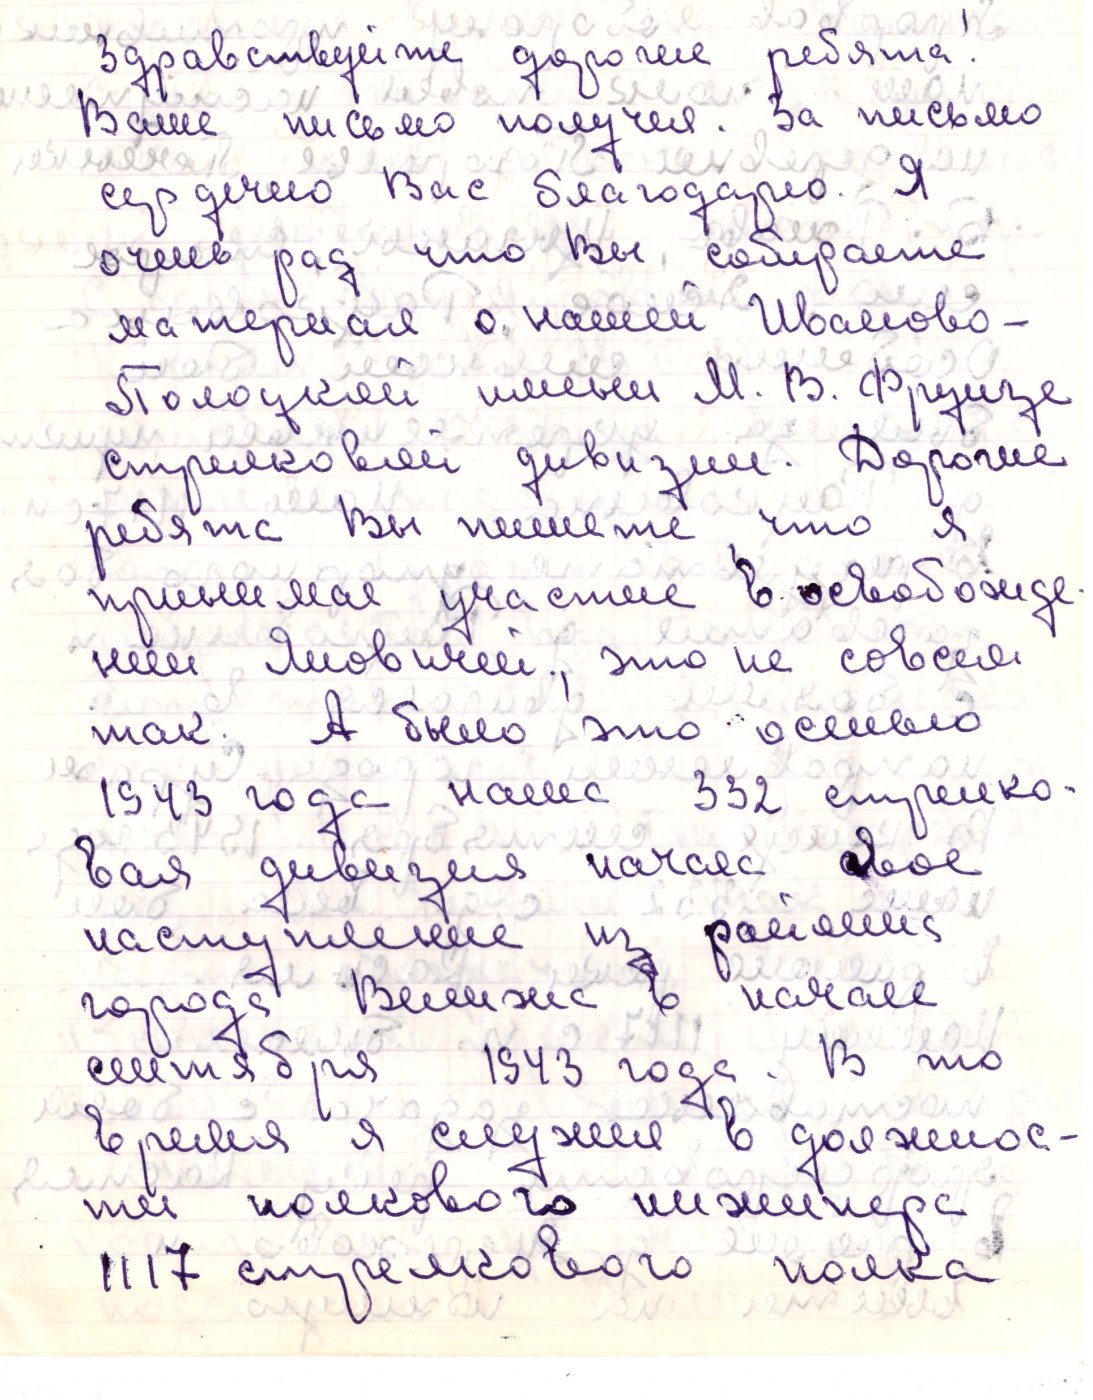 Здравствуйте дорогие ребята!
Ваше письмо получил. За письмо
сердечно Вас благодарю. Я
очень рад что Вы собираете
материал о нашей Иваново-
Полоцкой имени М. В. Фрунзе
стрелковой дивизии. Дорогие
ребята Вы пишете, что я
принимал участие в освобожде-
нии Яновичей, это не совсем
так. А было это осенью
1943 года наша 332 стрелко-
вая дивизия начала свое
наступление из района
города Велижа в начале
сентября 1943 года. В то
время я служил в должнос-
ти полкового инженера
1117 стрелкового полка